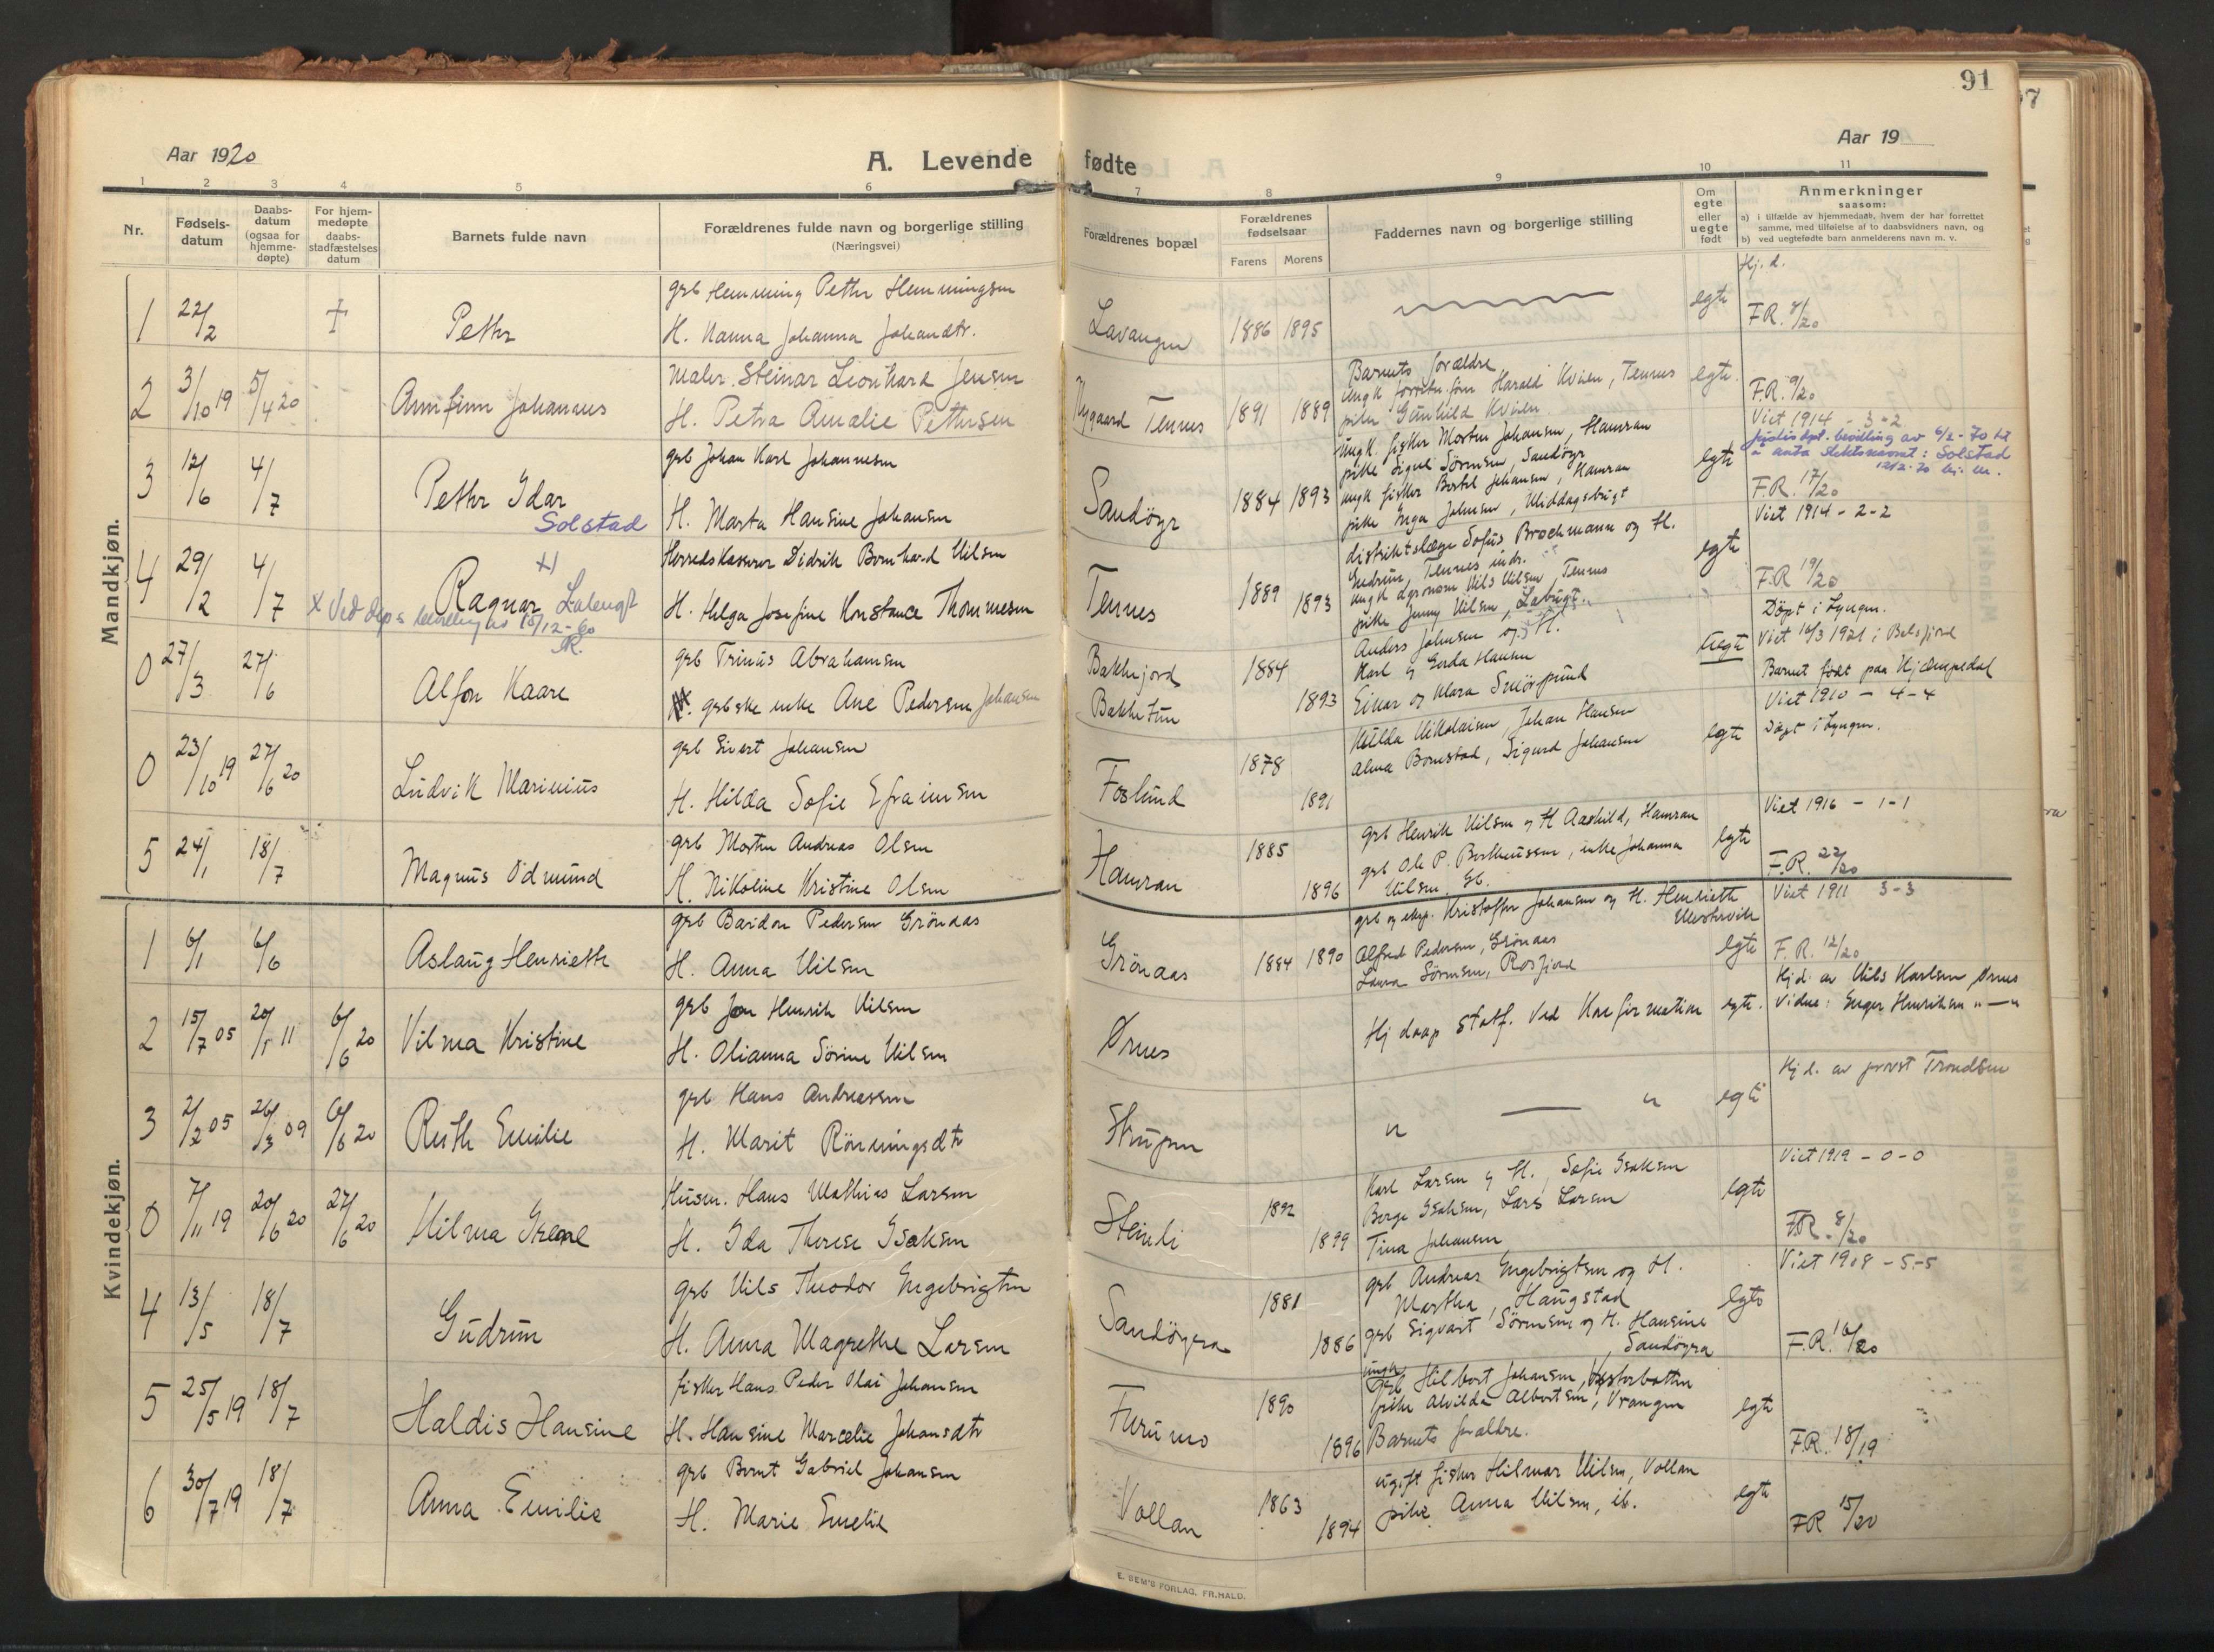 91
Aar 1920
A. Levende fødte
Aar 19
1 2 3 4 5 6 7 8 9 10 11
Nr.
Fødsels-
datum
Daabs-
datum
(ogsaa for
hjemme-
døpte)
For hjem-
medøpte
daabs-
stadfæstelses
datum
Barnets fulde navn
Forældrenes fulde navn og borgerlige stilling
(Næringsvei)
Forældrenes bopæl
Forældrenes
fødselsaar
Farens Morens
Faddernes navn og borgerlige stilling
Om
egte
eller
uegte
født
Anmerkninger
saasom:
a) i tilfælde av hjemmedaab, hvem der har forrettet
samme, med tilføielse af to daabsvidners navn, og
b) ved uegtefødte barn anmelderens navn m. v.
Mandkjøn.
1 22/2 Petter
grb Hemming Petter Hemmingsen
H. Nanna Johanna Johandtr.
Lavangen 1886 1895
egte
Hj. d.
F.R. 7/20
2 3/10 19 5/4 20 Arnfinn Johannes
Maler Steinar Leonhard Jensen
H. Petra Amalie Pettersen
Nygaard Tennes 1891 1889
Barnets forældre
Harald Kvien, Tennes
pike Gunhild Kvien
egte
F.R. 9/20
Viet 1914 - 3-2
3 12/6 4/7 Petter Idar
Solstad
grb Johan Karl Johannesen
H. Marta Hansine Johansen
Sandöyr 1884 1893
ungk. fisker Morten Johansen, Hamran
pike Signe Sörensen, Sandöyr
ungk fisker Bertel Johansen, Hamran
pike Inga Johnsen, Middagsbugt
egte
Justisdpt. bevilling av 6/2-70 til
å anta slektsnavnet: Solstad
F.R. 17/20
Viet 1914 - 2-2
4 29/2 4/7 Ragnar Labugt
x Ved dep s bevilling av 15/12-60
Herredskasserer Didrik Bernhard Nilsen
H. Helga Josefine Konstance Thommesen
Tennes 1889 1893
distriktslæge Sofus Brochmann og H.
Gudrun, Tennes
ungk agronom Nils Nilsen, Tennes
pike Jenny Nilsen, Labugt.
egte
F.R. 19/20
0 27/3 27/6 Alfon Kaare
grb Trinus Abrahamsen
grbske enke Ane Pedersen Johansen
Bakkejord 1884
Bakketun 1893
Anders Johnsen og H.
Karl og Gerda Hansen
Einar og Klara
uegte
Döpt i Lyngen.
Viet 16/3 1921 i Balsfjord
Barnet født paa Kjempedal
0 23/10 19 27/6 20 Ludvik Marinius
grb Sivert Johansen
H. Hilda Sofie Efraimsen
Foslund 1878 1891
Hulda Nikolaisen, Johan Hansen
Alma Bomstad, Sigurd Johansen
egte
Viet 1910 - 4-4
Döpt i Lyngen.
5 24/1 18/7 Magnus Odmund
grb Morten Andreas Olsen
H. Nikoline Kristine Olsen
Hamran 1885 1896
grb Henrik Nilsen og H Aashild, Hamran
grb Ole P. Bertheussen, enke Johanna
Nilsen
egte
Viet 1916 - 1-1
F.R. 22/20
Kvindekjøn.
1 6/1 6/6 Aslaug Henriette
grb Bardon Pedersen Grönaas
H. Anna Nilsen
Grönaas 1884 1890
grb og eksp. Kristoffer Johansen og H. Henriette
Mestervik
Alfred Pedersen, Grönaas
Laura Sörensen, Rosfjord
egte
Viet 1911 3-3
F.R. 12/20
2 15/7 05 20/5 11 6/6 20 Vilma Kristine
grb Jon Henrik Nilsen
H. Olianna Sörine Nilsen
Ørnes
Hj daap statf. ved Konfirmation
egte.
Hj d. av Nils Karlsen Ørnes
Vidne: Inger Henriksen " — "
3 2/2 05 26/3 09 6/6 20 Ruth Emilie
grb Hans Andreassen
H. Marit Rönningsdtr
Strupen
" — "
egte
Hj d. av provst Trondsen
0 7/11 19 20/6 20 27/6 20 Hilma Irene
Husm. Hans Mathias Larsen
H. Ida Therese Isaksen
Steinli 1892 1899
Karl Larsen og H., Sofie Isaksen
Berge Isaksen, Lars Larsen
Tina Johansen
egte
Viet 1919 - 0-0
F.R. 8/20
4 13/5 18/7 Gudrun
grb Nils Theodor Engebrigtsen
H. Anna Magrethe Larsen
Sandöyra 1881 1886
grb Andreas Engebrigtsen og H.
Martha, Haugstad
grb Sigvart Sörensen og H. Hansine
Sandöyra
egte
Viet 1908 - 5-5
F.R. 16/20
5 25/5 19 18/7 Haldis Hansine
fisker Hans Peder Olai Johansen
H. Hansine Marcelie Johansdtr
Furumo 1890 1896
ungk Hilbert Johansen, Vesterbotten
pike Alvilda Albertsen, Vrangen
Barnets forældre.
egte
F.R. 18/19
6 30/7 19 18/7 Anna Emilie
grb Bernt Gabriel Johansen
H. Marie Emelie
Vollan 1863 1894
ugift fisker Hilmar Nilsen, Vollan
pike Anna Nilsen, ib.
egte
FR 15/20
E. SEM'S FORLAG, FR.HALD.